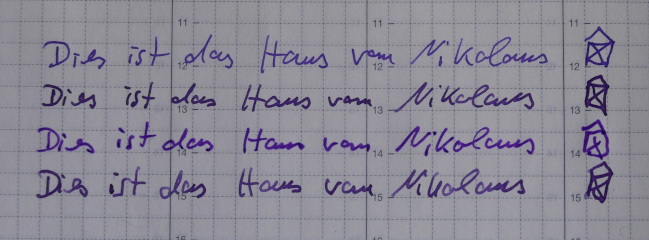 11 11 11
Dies ist das Haus vom Nikolaus
12 12 12
Dies ist das Haus vom Nikolaus
13 13 13
Dies ist das Haus vom Nikolaus
14 14 14
Dies ist das Haus vom Nikolaus
15 15 15
16 16